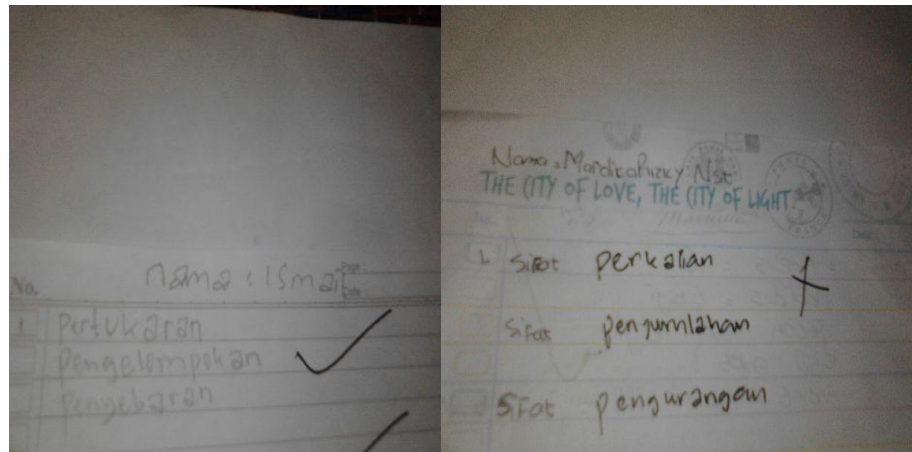 No. nama : Ismail
1 Pertukaran
Pengelompokan
Penyebaran
Nama : Mardita Rizky Nst
THE CITY OF LOVE, THE CITY OF LIGHT.
Marseille
1. Sifat perkalian
Sifat pengumlahan
Sifat pengurangan